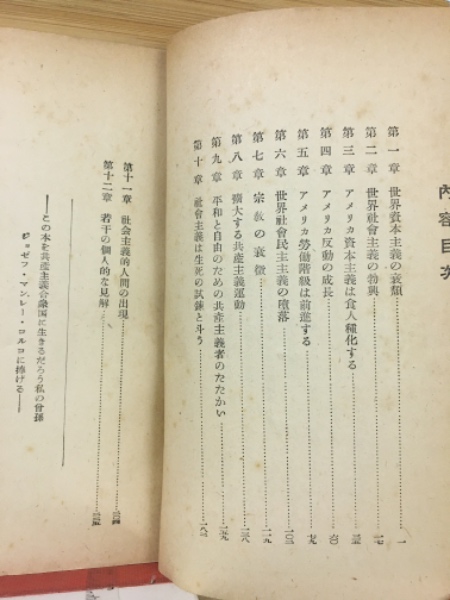 內容目次
第一章 世界資本主義の衰頽 一
第二章 世界社會主義の勃興 一七
第三章 アメリカ資本主義は食人種化する
第四章 アメリカ反動の成長 六〇
第五章 アメリカ勞働階級は前進する 七九
第六章 世界社會民主主義の墮落 一〇三
第七章 宗敎の衰微 一一九
第八章 擴大する共產主義運動 一三八
第九章 平和と自由のための共產主義者のたたかい 一五九
第十章 社會主義は生死の試鍊と斗う
第十一章 社会主義的人間の出現
第十二章 若干の個人的な見解
――この本を共產主義合衆国に生きるだろう私の曾孫
ジョゼフ・マンレー・コルコに捧げる――